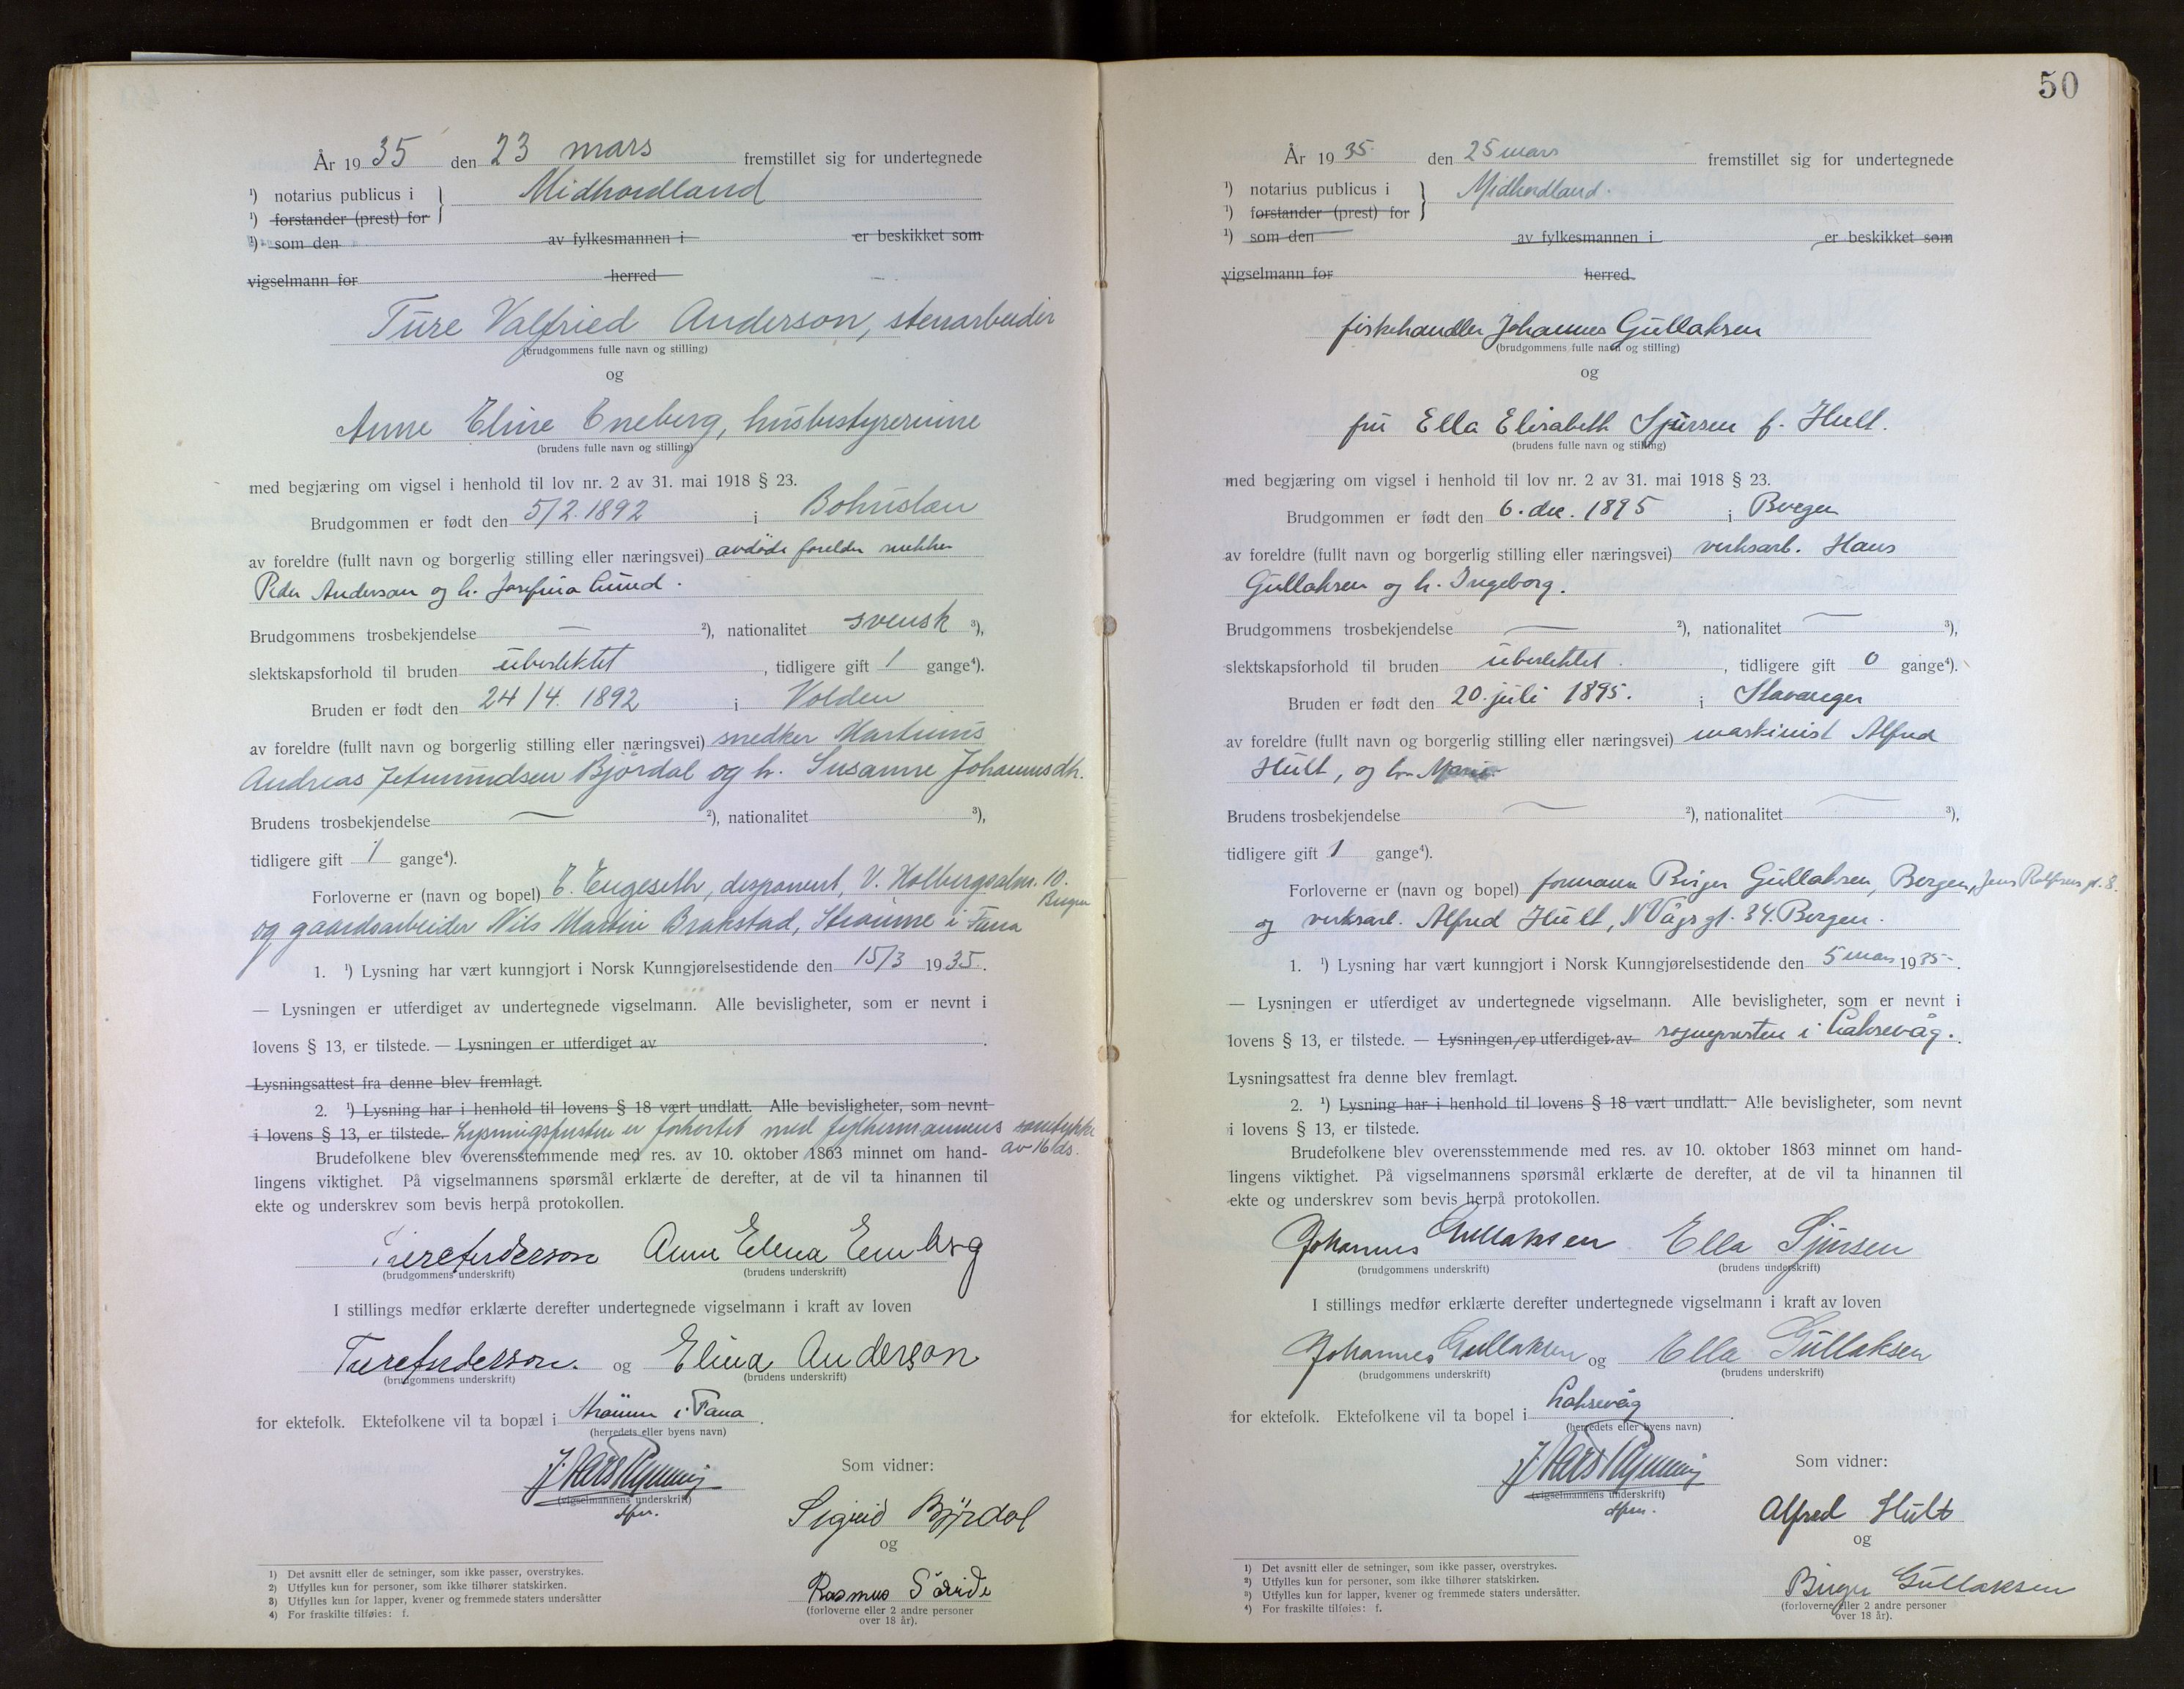 År 1935 den 23 mars fremstillet sig for undertegnede
¹) notarius publicus i } Midhordland
¹) forstander (prest) for
¹) som den av fylkesmannen i er beskikket som
vigselmann for herred
Ture Valfried Anderson, stenarbeider
(brudgommens fulle navn og stilling)
og
Anne Eline Eneberg, husbestyrerinne
(brudens fulle navn og stilling)
med begjæring om vigsel i henhold til lov nr. 2 av 31. mai 1918 § 23.
Brudgommen er født den 5/2. 1892 i Bohuslen
av foreldre (fullt navn og borgerlig stilling eller næringsvei) avdöde forelder
Peder Anderson og h. Josefina Lund.
Brudgommens trosbekjendelse — ²), nationalitet svensk ³),
slektskapsforhold til bruden ubeslektet, tidligere gift 1 gange⁴).
Bruden er født den 24/4. 1892 i Volden
av foreldre (fullt navn og borgerlig stilling eller næringsvei) snedker Martinus
Andreas Jetmundsen Bjørdal og h. Susanne Johannusdh.
Brudens trosbekjendelse — ²), nationalitet ³),
tidligere gift 1 gange⁴).
Forloverne er (navn og bopel) E. Engeseth, disponent, V. Holbergsalm. 10. Bergen
og gaardsarbeider Nils Martin Brakstad, Straume i Fana
1. ¹) Lysning har vært kunngjort i Norsk Kunngjørelsestidende den 15/3 1935.
— Lysningen er utferdiget av undertegnede vigselmann. Alle bevisligheter, som er nevnt i
lovens § 13, er tilstede. — Lysningen er utferdiget av
Lysningsattest fra denne blev fremlagt.
2. ¹) Lysning har i henhold til lovens § 18 vært undlatt. Alle bevisligheter, som nevnt
i lovens § 13, er tilstede. Lysningsfristen er forkortet med fylkesmannens samtykke
av 16 ds.
Brudefolkene blev overensstemmende med res. av 10. oktober 1863 minnet om hand-
lingens viktighet. På vigselmannens spørsmål erklærte de derefter, at de vil ta hinannen til
ekte og underskrev som bevis herpå protokollen.
Ture Anderson Anne Elina Eneberg
(brudgommens underskrift) (brudens underskrift)
I stillings medfør erklærte derefter undertegnede vigselmann i kraft av loven
Ture Anderson. og Elina Anderson
(brudgommens underskrift) (brudens underskrift)
for ektefolk. Ektefolkene vil ta bopæl i Straume i Fana.
(herredets eller byens navn)
(vigselmannens underskrift)
dfm.
Som vidner:
Sigrid Bjørdal
og
Rasmus Söreide
(forloverne eller 2 andre personer
over 18 år).
1) Det avsnitt eller de setninger, som ikke passer, overstrykes.
2) Utfylles kun for personer, som ikke tilhører statskirken.
3) Utfylles kun for lapper, kvener og fremmede staters undersåtter
4) For fraskilte tilføies: f.
50
År 1935. den 25 mars fremstillet sig for undertegnede
¹) notarius publicus i } Midhordland.
¹) forstander (prest) for
¹) som den av fylkesmannen i er beskikket som
vigselmann for herred.
fiskehandler Johannes Gullaksen
(brudgommens fulle navn og stilling)
og
fru Ella Elisabeth Sjursen f. Hult.
(brudens fulle navn og stilling)
med begjæring om vigsel i henhold til lov nr. 2 av 31. mai 1918 § 23.
Brudgommen er født den 6. des. 1895 i Bergen
av foreldre (fullt navn og borgerlig stilling eller næringsvei) verksarb. Hans
Gullaksen og h. Ingeborg.
Brudgommens trosbekjendelse — ²), nationalitet — ³),
slektskapsforhold til bruden ubeslektet., tidligere gift 0 gange⁴).
Bruden er født den 20. juli 1895. i Stavanger
av foreldre (fullt navn og borgerlig stilling eller næringsvei) maskinist Alfred
Hult, og h. Marie
Brudens trosbekjendelse — ²), nationalitet — ³),
tidligere gift 1 gange⁴).
Forloverne er (navn og bopel) formann Birger Gullaksen, Bergen, Jens Rolfsens gt. 8.
og verksarb. Alfred Hult, N Vågsgt. 34. Bergen.
1. ¹) Lysning har vært kunngjort i Norsk Kunngjørelsestidende den 5 mars 1935.
— Lysningen er utferdiget av undertegnede vigselmann. Alle bevisligheter, som er nevnt i
lovens § 13, er tilstede. — Lysningen er utferdiget av sognepresten i Laksevåg.
Lysningsattest fra denne blev fremlagt.
2. ¹) Lysning har i henhold til lovens § 18 vært undlatt. Alle bevisligheter, som nevnt
i lovens § 13, er tilstede.
Brudefolkene blev overensstemmende med res. av 10. oktober 1863 minnet om hand-
lingens viktighet. På vigselmannens spørsmål erklærte de derefter, at de vil ta hinannen til
ekte og underskrev som bevis herpå protokollen.
Johannes Gullaksen Ella Sjursen
(brudgommens underskrift) (brudens underskrift)
I stillings medfør erklærte derefter undertegnede vigselmann i kraft av loven
Johannes Gullaksen og Ella Gullaksen
(brudgommens underskrift) (brudens underskrift)
for ektefolk. Ektefolkene vil ta bopel i Laksevåg.
(herredets eller byens navn)
(vigselmannens underskrift)
dfm.
Som vidner:
Alfred Hult
og
Birger Gullaksen
(forloverne eller 2 andre personer
over 18 år).
1) Det avsnitt eller de setninger, som ikke passer, overstrykes.
²) Utfylles kun for personer, som ikke tilhører statskirken.
³) Utfylles kun for lapper, kvener og fremmede staters undersåtter.
⁴) For fraskilte tilføies: f.